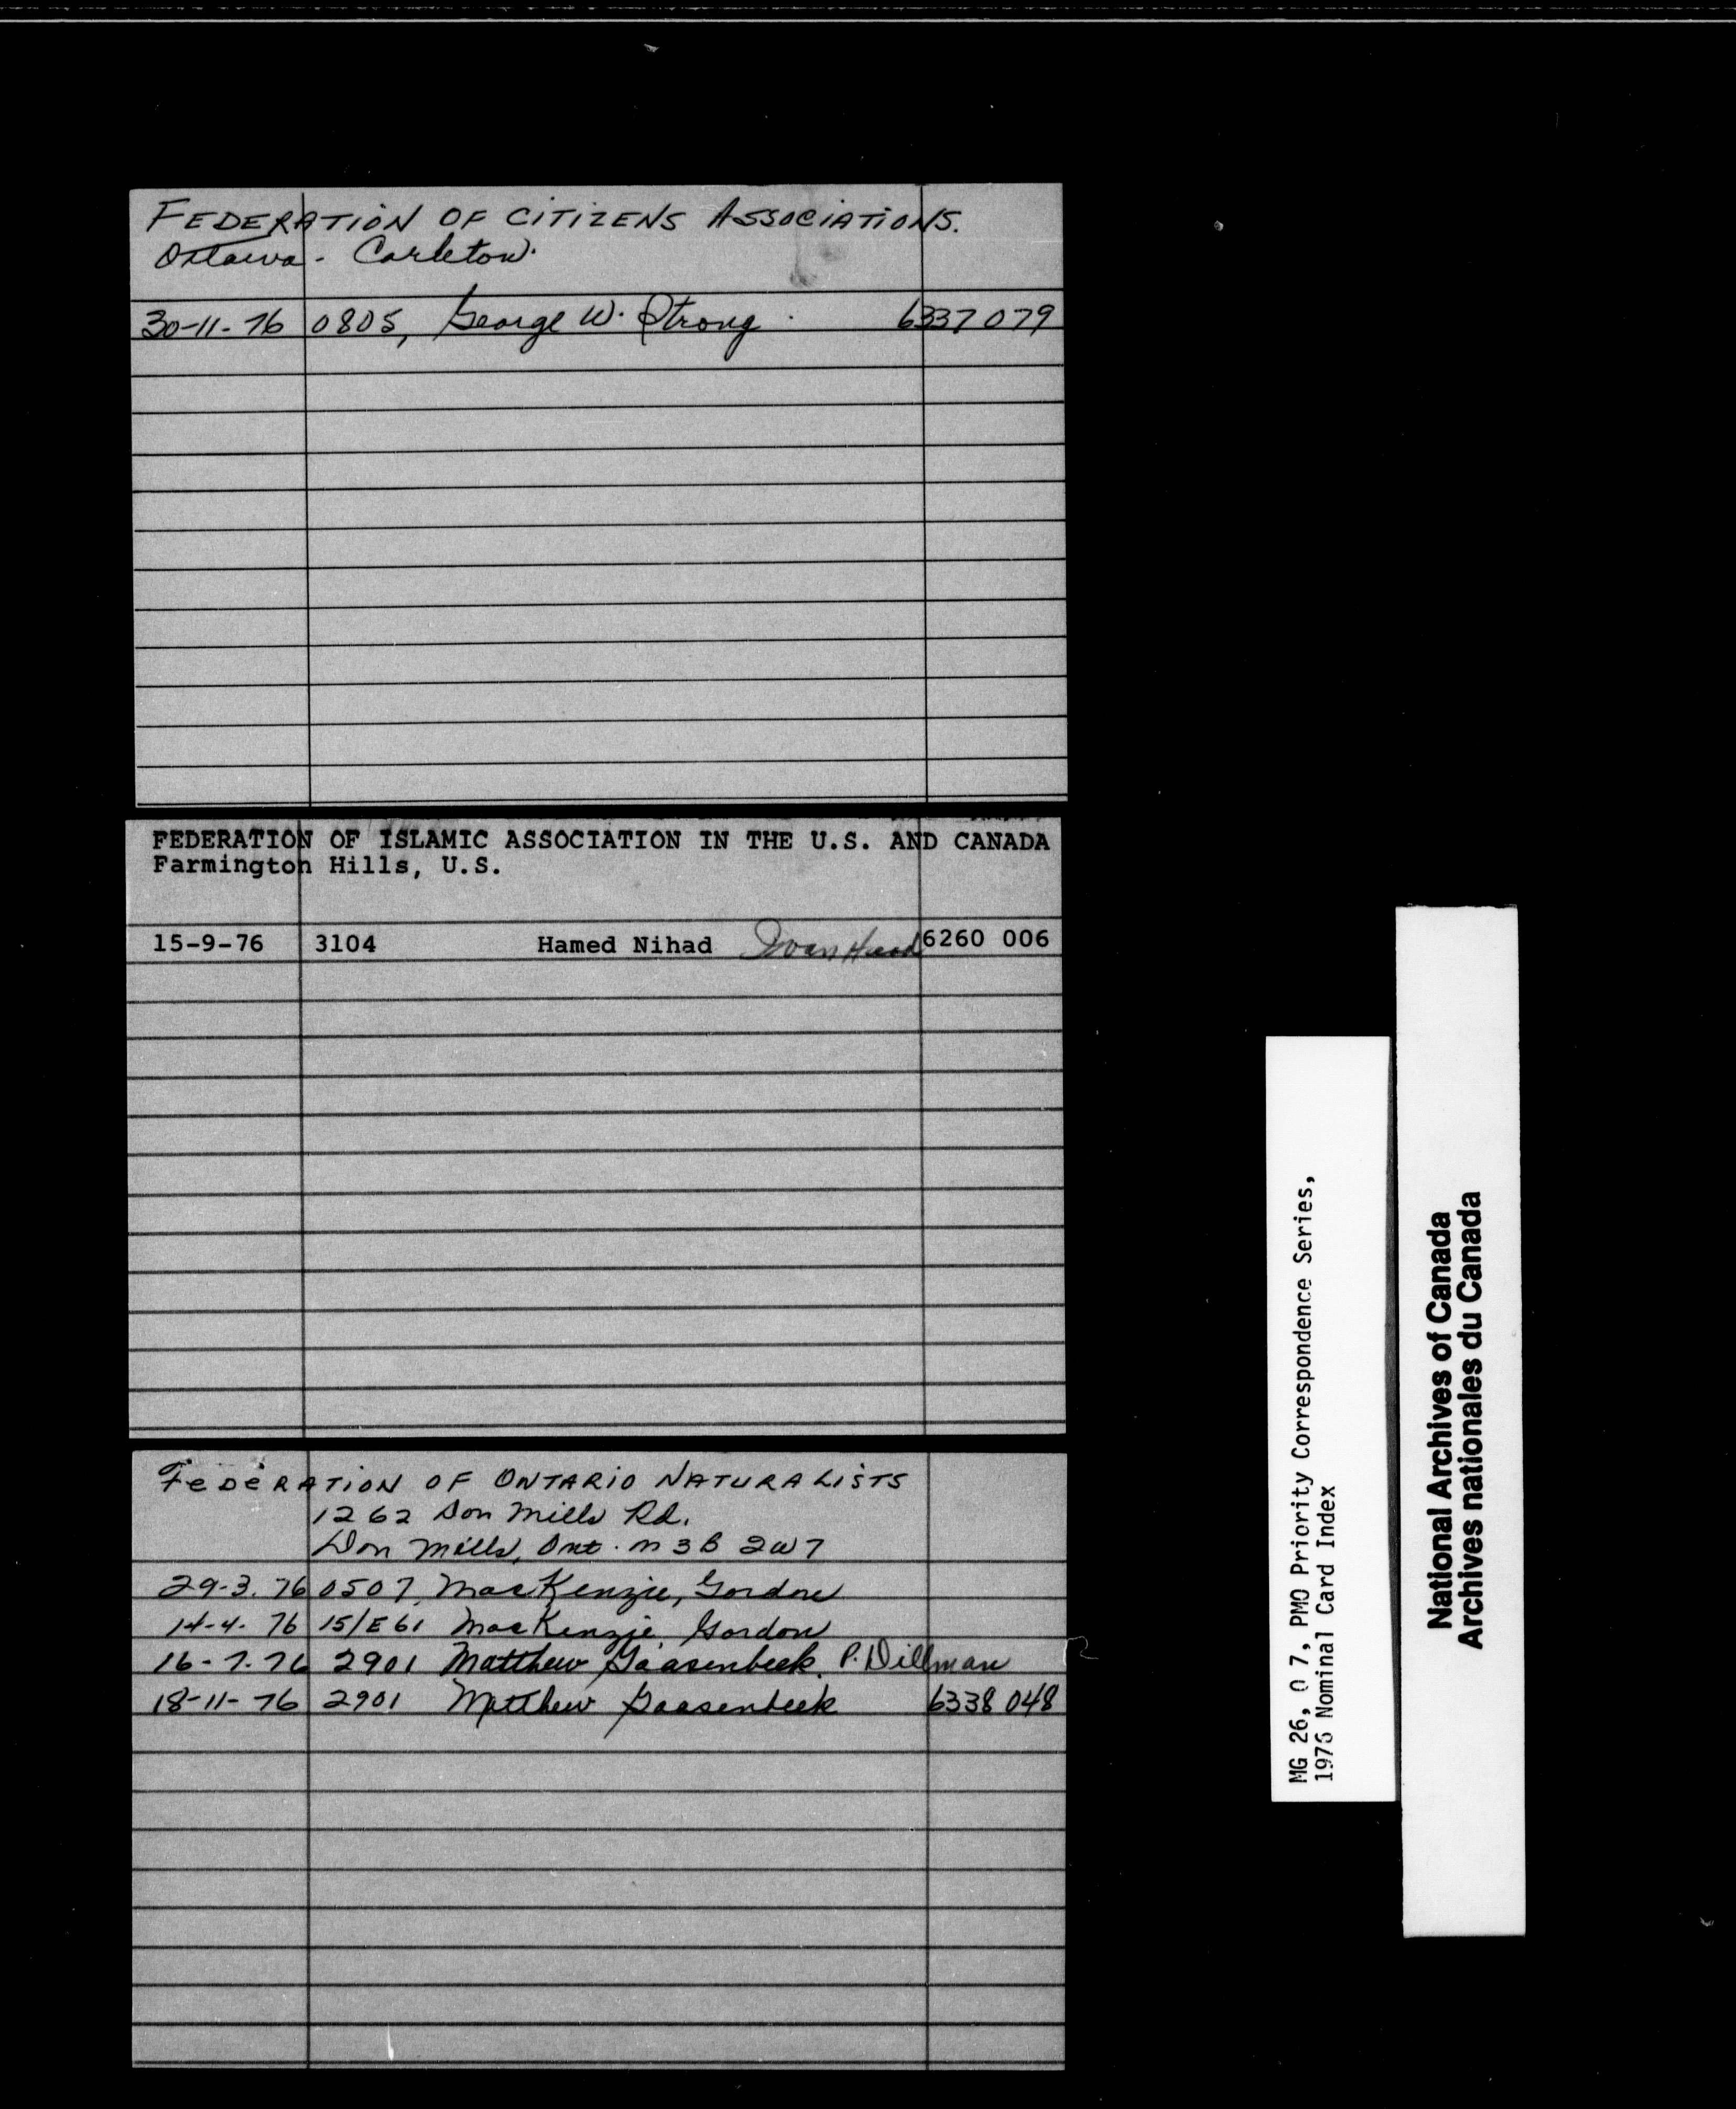 FEDERATION OF CITIZENS ASSOCIATIONS.
Ottawa - Carleton.
30-11-76 0805, George W. Strong 6337 079
FEDERATION OF ISLAMIC ASSOCIATION IN THE U.S. AND CANADA
Farmington Hills, U.S.
15-9-76 3104 Hamed Nihad Ivan Head 6260 006
FEDERATION OF ONTARIO NATURALISTS
1262 Don Mills Rd.
Don Mills, Ont. M3B 2W7
29-3.76 0507, MacKenzie, Gordon
14-4. 76 15/E61 MacKenzie, Gordon
16-7.76 2901 Matthew Gaasenbeek. P. Dillman
18-11-76 2901 Matthew Gaasenbeek 6338 048
MG 26, O 7, PMO Priority Correspondence Series,
1976 Nominal Card Index
National Archives of Canada
Archives nationales du Canada